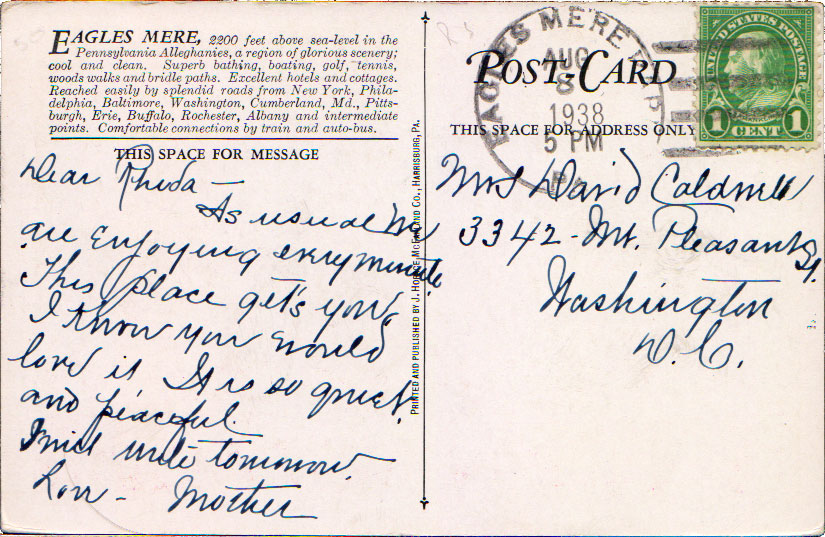 EAGLES MERE, 2200 feet above sea-level in the
Pennsylvania Alleghanies, a region of glorious scenery;
cool and clean. Superb bathing, boating, golf, tennis,
woods walks and bridle paths. Excellent hotels and cottages.
Reached easily by splendid roads from New York, Phila-
delphia, Baltimore, Washington, Cumberland, Md., Pitts-
burgh, Erie, Buffalo, Rochester, Albany and intermediate
points. Comfortable connections by train and auto-bus.
THIS SPACE FOR MESSAGE
Dear Rhoda -
As usual We
are enjoying every minute.
This place gets you,
I know you would
love it It is so quiet
and peaceful.
I will write tomorrow.
Love - Mother
PRINTED AND PUBLISHED BY J. HORACE MCFARLAND CO., HARRISBURG, PA.
EAGLES MERE
AUG
8
1938
5 PM
PA.
UNITED STATES POSTAGE
1 CENT 1
POST-CARD
THIS SPACE FOR ADDRESS ONLY
Mrs David Caldwell
3342 - Mt. Pleasant St.
Washington
D.C.